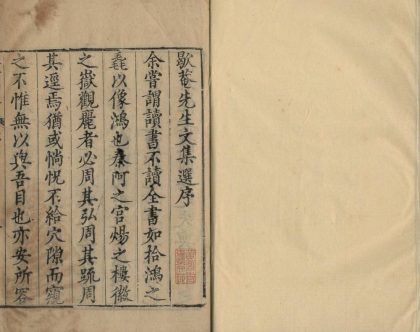 歇菴先生文集選序
余嘗謂讀書不讀全書如拾鴻之
毳以像鴻也秦阿之宮煬之樓徽
之嶽觀麗者必周其弘周其疏周
其邃焉猶或惝怳不給穴隙而窺
之不惟無以與吾目也亦安所容